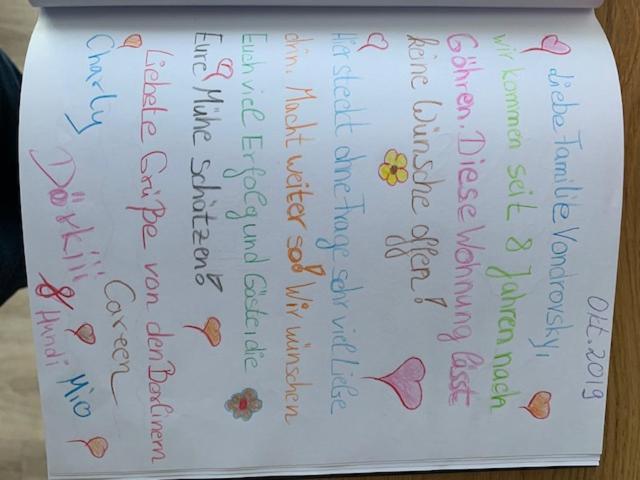 Okt. 2019
Liebe Familie Vondrovsky,
wir kommen seit 8 Jahren nach
Göhren. Diese Wohnung lässt
keine Wünsche offen!
Hier steckt ohne Frage sehr viel Liebe
drin. Macht weiter so! Wir wünschen
Euch viel Erfolg und Gäste, die
Eure Mühe schätzen!
Liebste Grüße von den Berlinern
Charly Careen Mio
Dörkiii
& Hundi